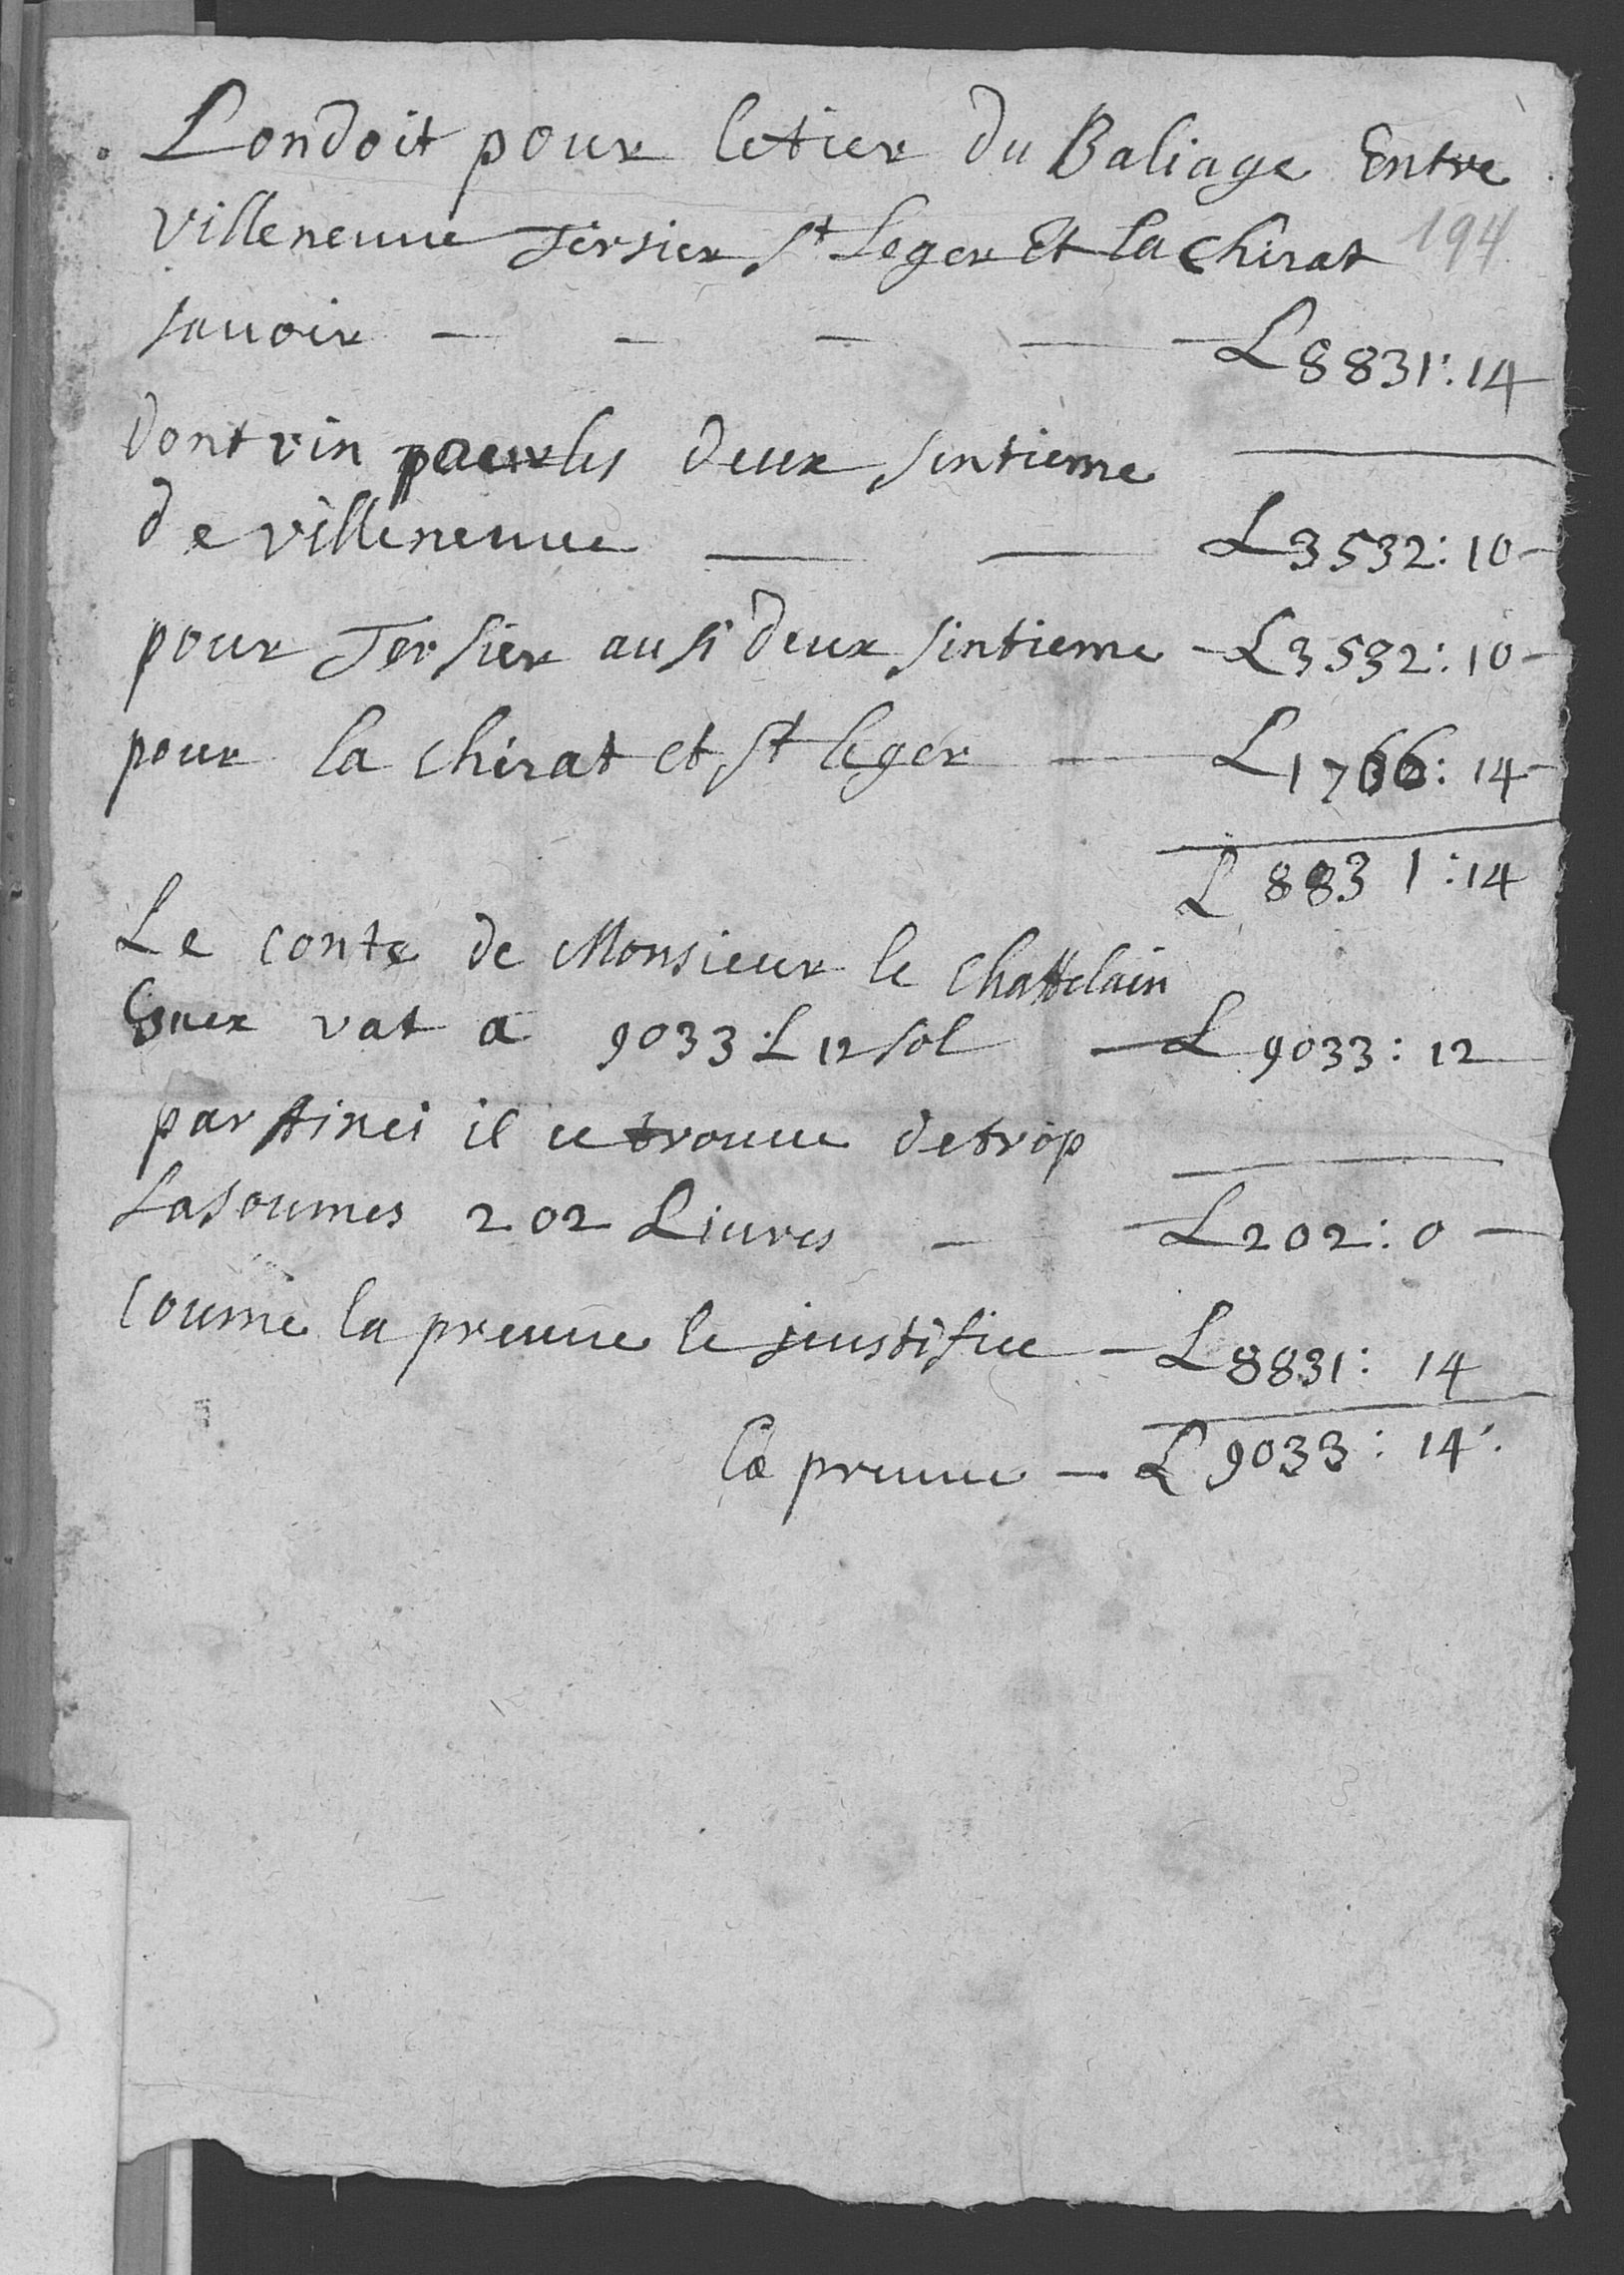 Londoit pour letier du Baliage Entre
Villeneuue Jersier St Leger Et la Chirat 194
sauoir — — — — L 8831:14
dont vin pour les deux sintieme
de villeneuue — — L 3532:10-
pour Jersier ausi deux sintieme - L 3532:10-
pour la chirat et st leger — L 1766:14-
L 8831:14
Le conte de Monsieur le Chattelain
vat a 9033 L 12 sol — L 9033:12
par Ainci il ce trouue detrop
La soumes 202 Liures — L 202:0 —
coume la preuue le justifiee - L 8831:14
La preuue — L 9033:14